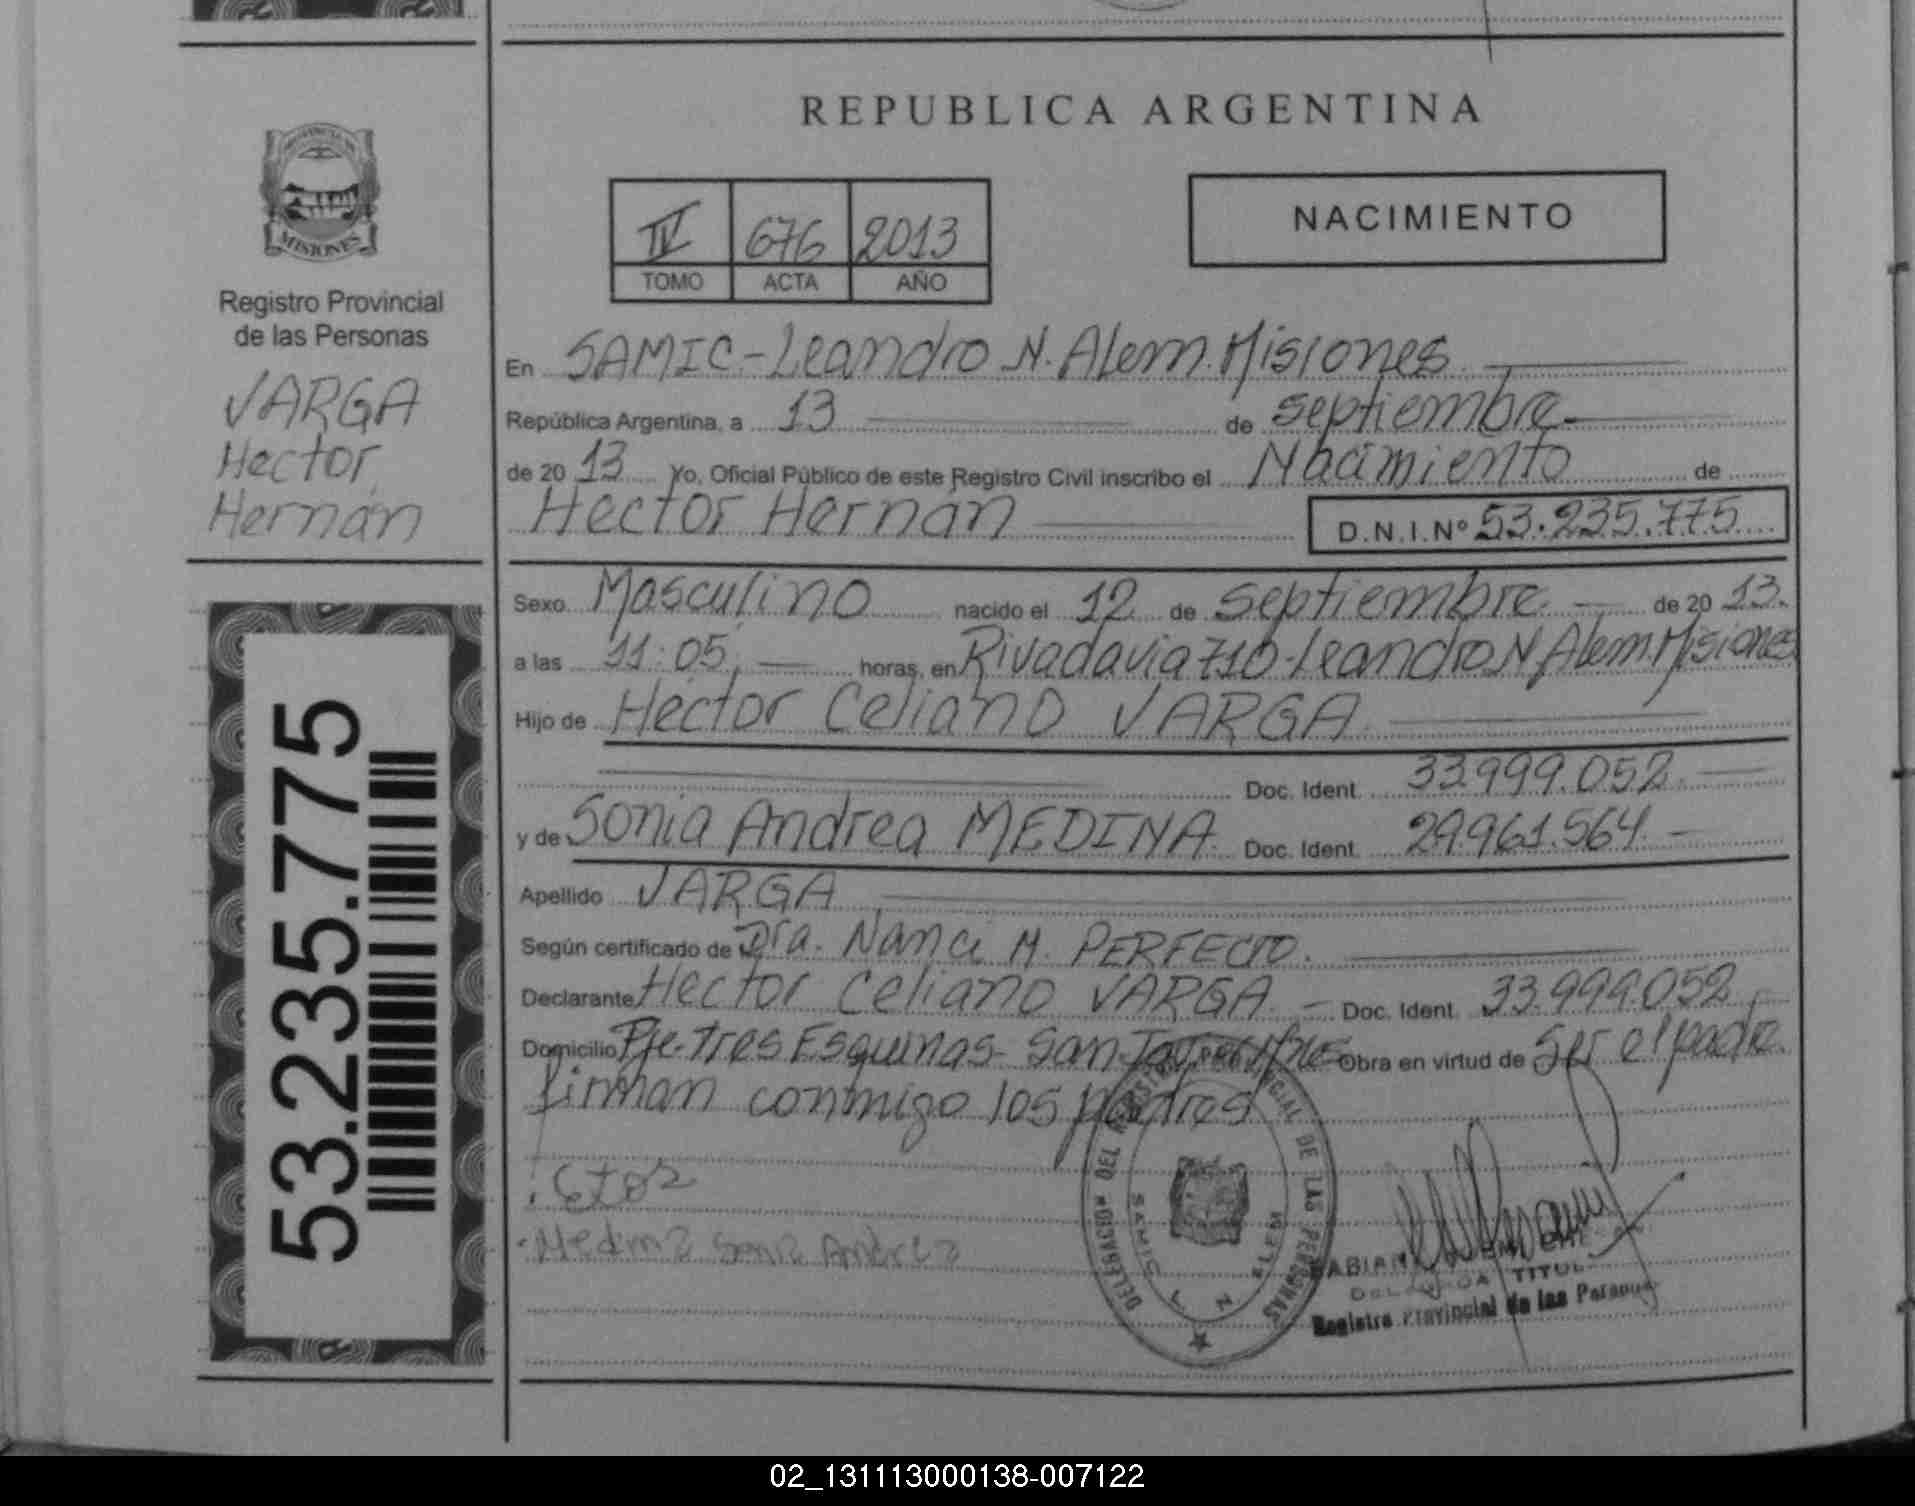 REPUBLICA ARGENTINA
PROVINCIA DE
MISIONES
Registro Provincial
de las Personas
VARGA
Hector
Hernán
IV 676 2013
TOMO ACTA AÑO
NACIMIENTO
En SAMIC-Leandro N. Alem. Misiones
República Argentina, a 13 de septiembre
de 20 13 Yo, Oficial Público de este Registro Civil inscribo el Nacimiento de
Hector Hernán D.N.I.Nº 53.235.775
Sexo Masculino nacido el 12 de septiembre de 20 13.
a las 11:05 horas, en Rivadavia 710-Leandro N Alem.Misiones
Hijo de Hector Celiano VARGA
Doc. Ident. 33.999.052.
y de Sonia Andrea MEDINA Doc. Ident. 29.961.564.
Apellido VARGA
Según certificado de Dra. Nanci M. PERFECTO.
Declarante Hector Celiano VARGA Doc. Ident. 33.999.052
Domicilio Pje. Tres Esquinas- San Obra en virtud de ser el padre.
firman conmigo los padres
Medina Sonia Andrea
DELEGACION DEL REGISTRO PROVINCIAL DE LAS PERSONAS
SAMIC L N ALEM
TITUL
Registro Provincial de las Personas
53.235.775
02_131113000138-007122